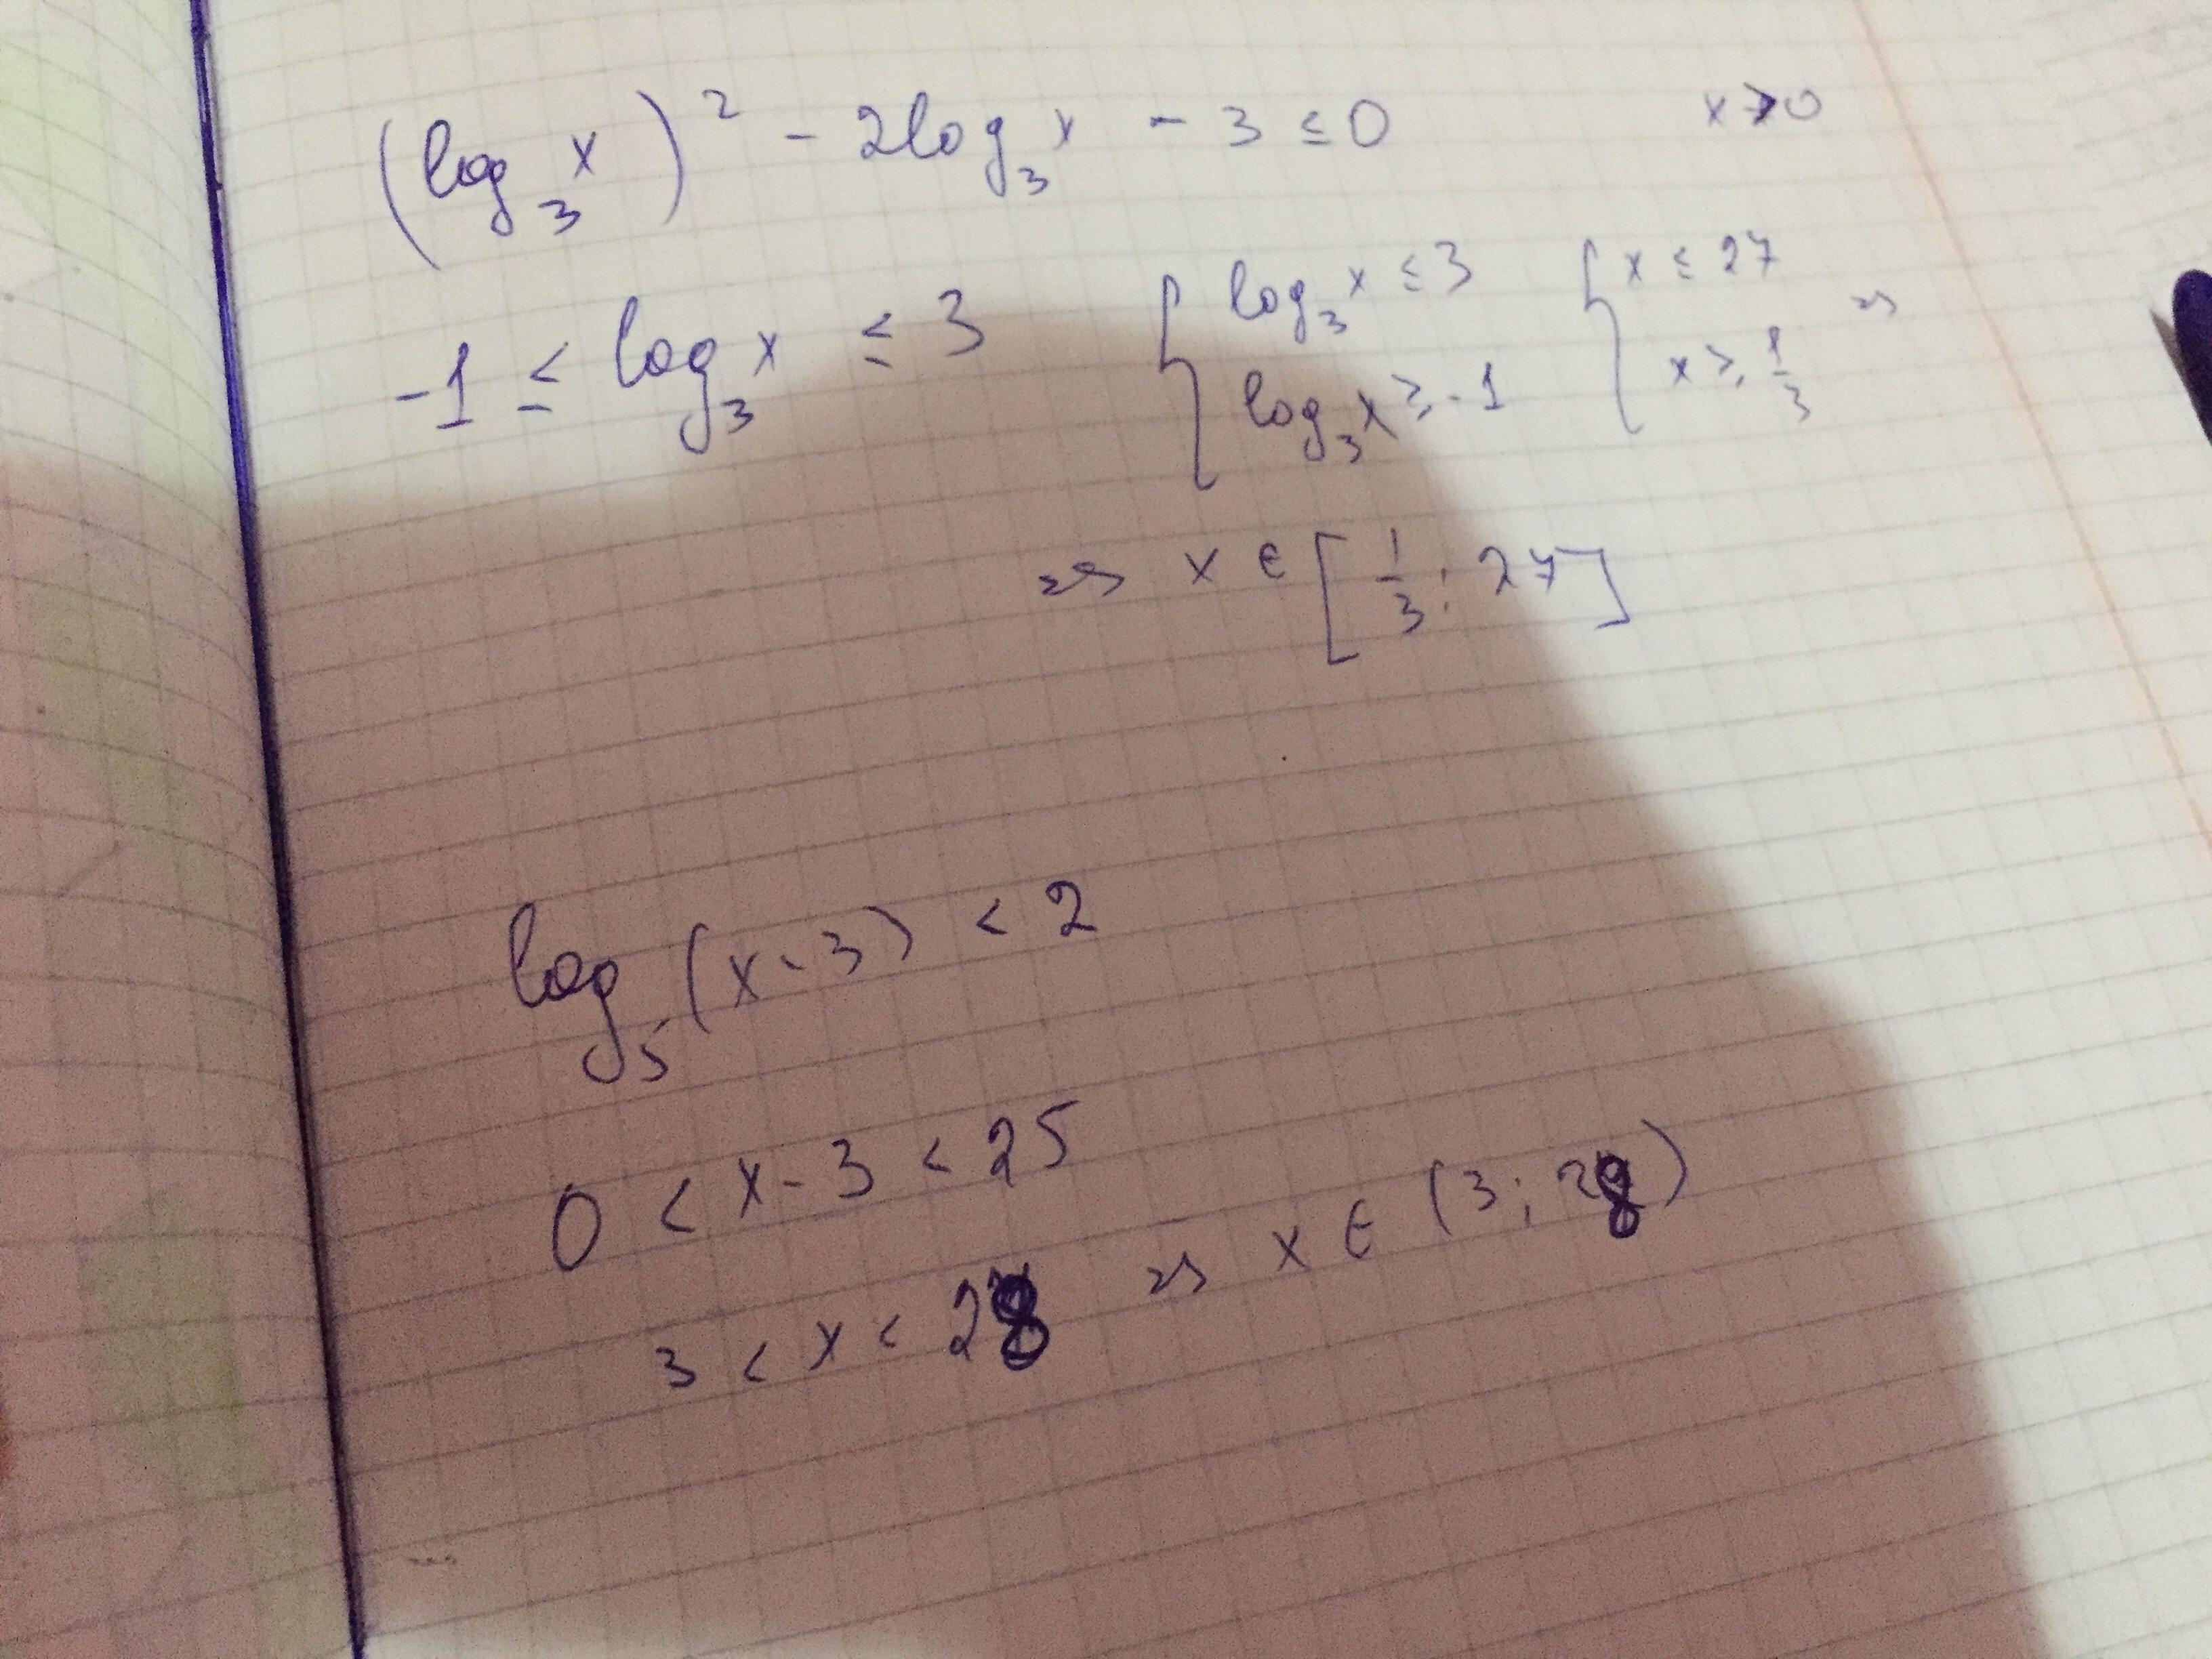 (log₃x)² - 2log₃x - 3 ≤ 0 x > 0
-1 ≤ log₃x ≤ 3 { log₃x ≤ 3 { x ≤ 27
log₃x ≥ -1 x ≥ 1/3 =>
=> x ∈ [1/3; 27]
log₅(x-3) < 2
0 < x - 3 < 25
3 < x < 28 => x ∈ (3; 28)